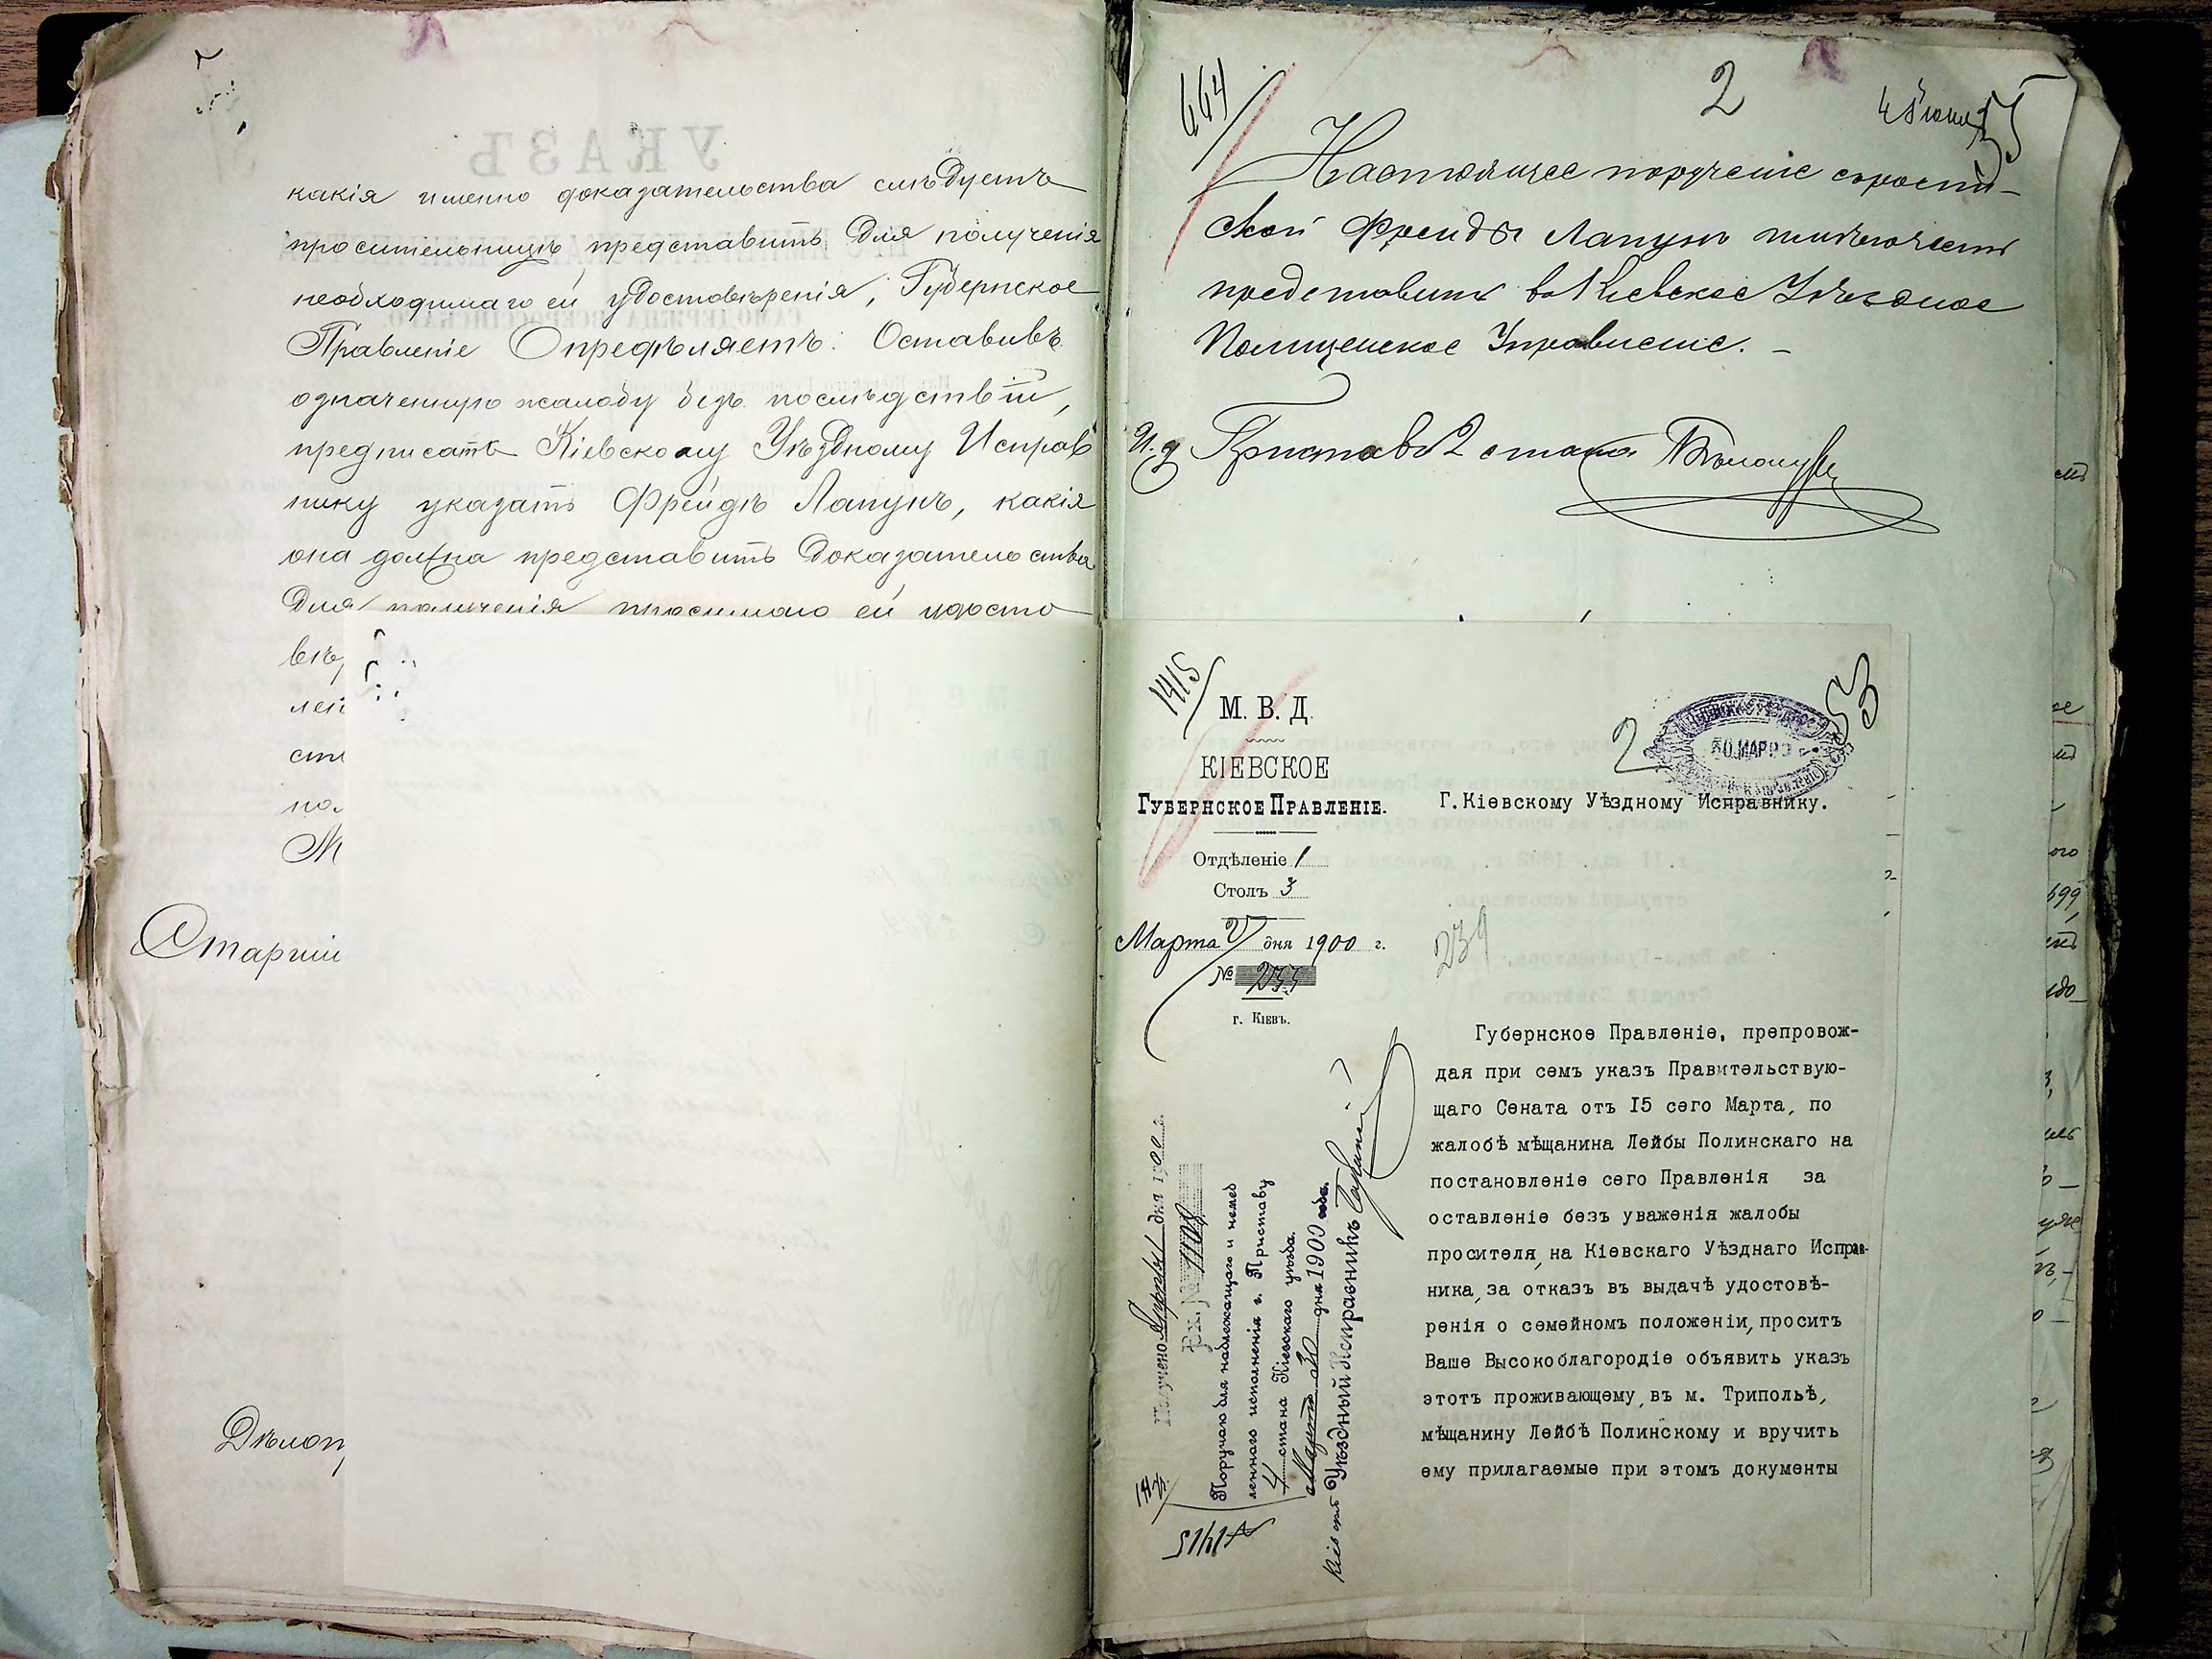 какія именно доказательства слѣдуетъ
просительницѣ представить для полученія
необходимаго ей удостовѣренія, Губернское
Правленіе Опредѣляетъ: Оставивъ
означенную жалобу безъ послѣдствій,
предписать Кіевскому Уѣздному Исправ
нику указать Фрейдѣ Лапунъ, какія
она должна представить доказательства
для полученія просимаго ей удосто
вѣ
лен
сти
по
М
Старшій
Дѣлоп
664
2
55
Настоящее порученіе съ распи-
ской Фрейды Лапунъ
представить въ Кіевское Уѣздное
Полицейское Управленіе. -
И. д. Пристава 2 стана
1415
М. В. Д.
КІЕВСКОЕ
ГУБЕРНСКОЕ ПРАВЛЕНІЕ.
Отдѣленіе 1
Столъ 3
Марта 27 дня 1900 г.
№
г. КІЕВЪ.
2
53
30.МАР
239
Г.Кіевскому Уѣздному Исправнику.
Губернское Правленіе, препровож-
дая при семъ указъ Правительствую-
щаго Сената отъ 15 сего Марта, по
жалобѣ мѣщанина Лейбы Полинскаго на
постановленіе сего Правленія за
оставленіе безъ уваженія жалобы
просителя, на Кіевскаго Уѣзднаго Исправ-
ника, за отказъ въ выдачѣ удостовѣ-
ренія о семейномъ положеніи, проситъ
Ваше Высокоблагородіе объявить указъ
этотъ проживающему, въ м. Трипольѣ,
мѣщанину Лейбѣ Полинскому и вручить
ему прилагаемые при этомъ документы
Получено дня 1900 г.
Вх. № 1108
Поручаю для надлежащаго и немед
леннаго исполненія г. Приставу
4 стана Кіевскаго уѣзда.
Марта 30 дня 1900 года.
Уѣздный Исправникъ
№1415